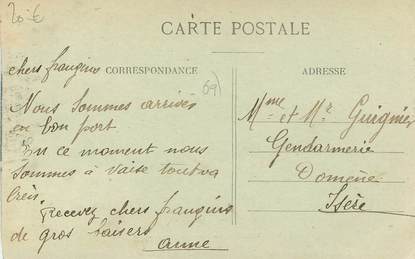 20 €
CARTE POSTALE
chers frangins
CORRESPONDANCE
69
ADRESSE
Nous sommes arrivés
en bon port
En ce moment nous
sommes à Vaise tout va
bien
Recevez chers frangins
de gros baisers
anne
Mme et Mr Guignier
Gendarmerie
Domène
Isère